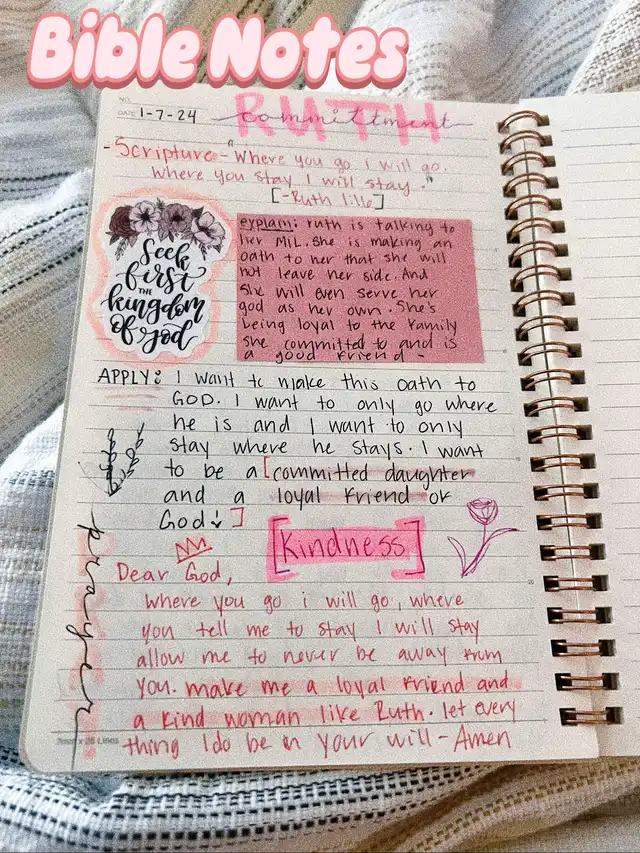 Bible Notes
NO.
DATE 1-7-24
RUTH
committment
-Scripture- "Where you go i will go.
where you stay I will stay."
[-Ruth 1:16]
Seek
first
THE
kingdom
of god
explain: ruth is talking to
her MIL. She is making an
oath to her that she will
not leave her side. And
she will even serve her
god as her own. She's
being loyal to the family
she committed to and is
a good friend -
APPLY: I want to make this oath to
GOD. I want to only go where
he is and I want to only
stay where he stays. I want
to be a [committed daughter
and a loyal friend of
God ]
[kindness]
prayer
Dear God,
where you go i will go, where
you tell me to stay I will stay
allow me to never be away from
you. make me a loyal friend and
a kind woman like Ruth. let every
thing I do be in your will - Amen
Lines